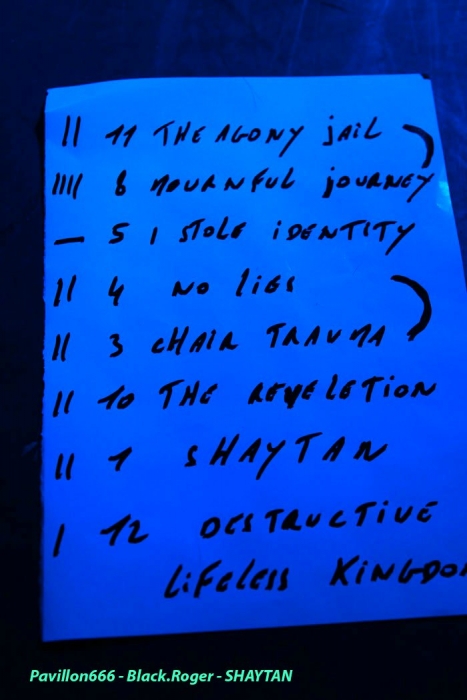 || 11 THE AGONY jAiL
|||| 8 MOURNFUL jOURNEY
— 5 I STOLE iDENTITY
|| 4 NO LiES
|| 3 CHAIR TRAUMA
|| 10 THE REVELETiON
|| 1 SHAYTAN
| 12 DESTRUCTIVE
LiFELESS KiNGDO
Pavillon666 - Black.Roger - SHAYTAN